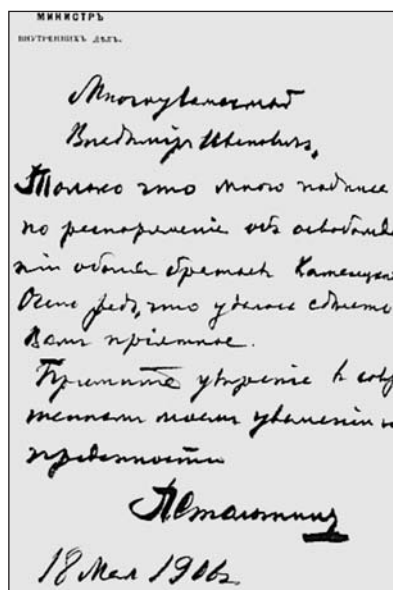 МИНИСТРЪ
ВНУТРЕННИХЪ ДѢЛЪ.
Многоуважаемый
Владиміръ Ивановичъ,
Только что мною подписа
но распоряженіе объ освобожде
ніи обоихъ братьевъ
Очень радъ, что удалось сдѣлать
Вамъ пріятное.
Примите увѣреніе въ совер
шенномъ моемъ уваженіи и
преданности
ПСтолыпинъ
18 Мая 1906г.